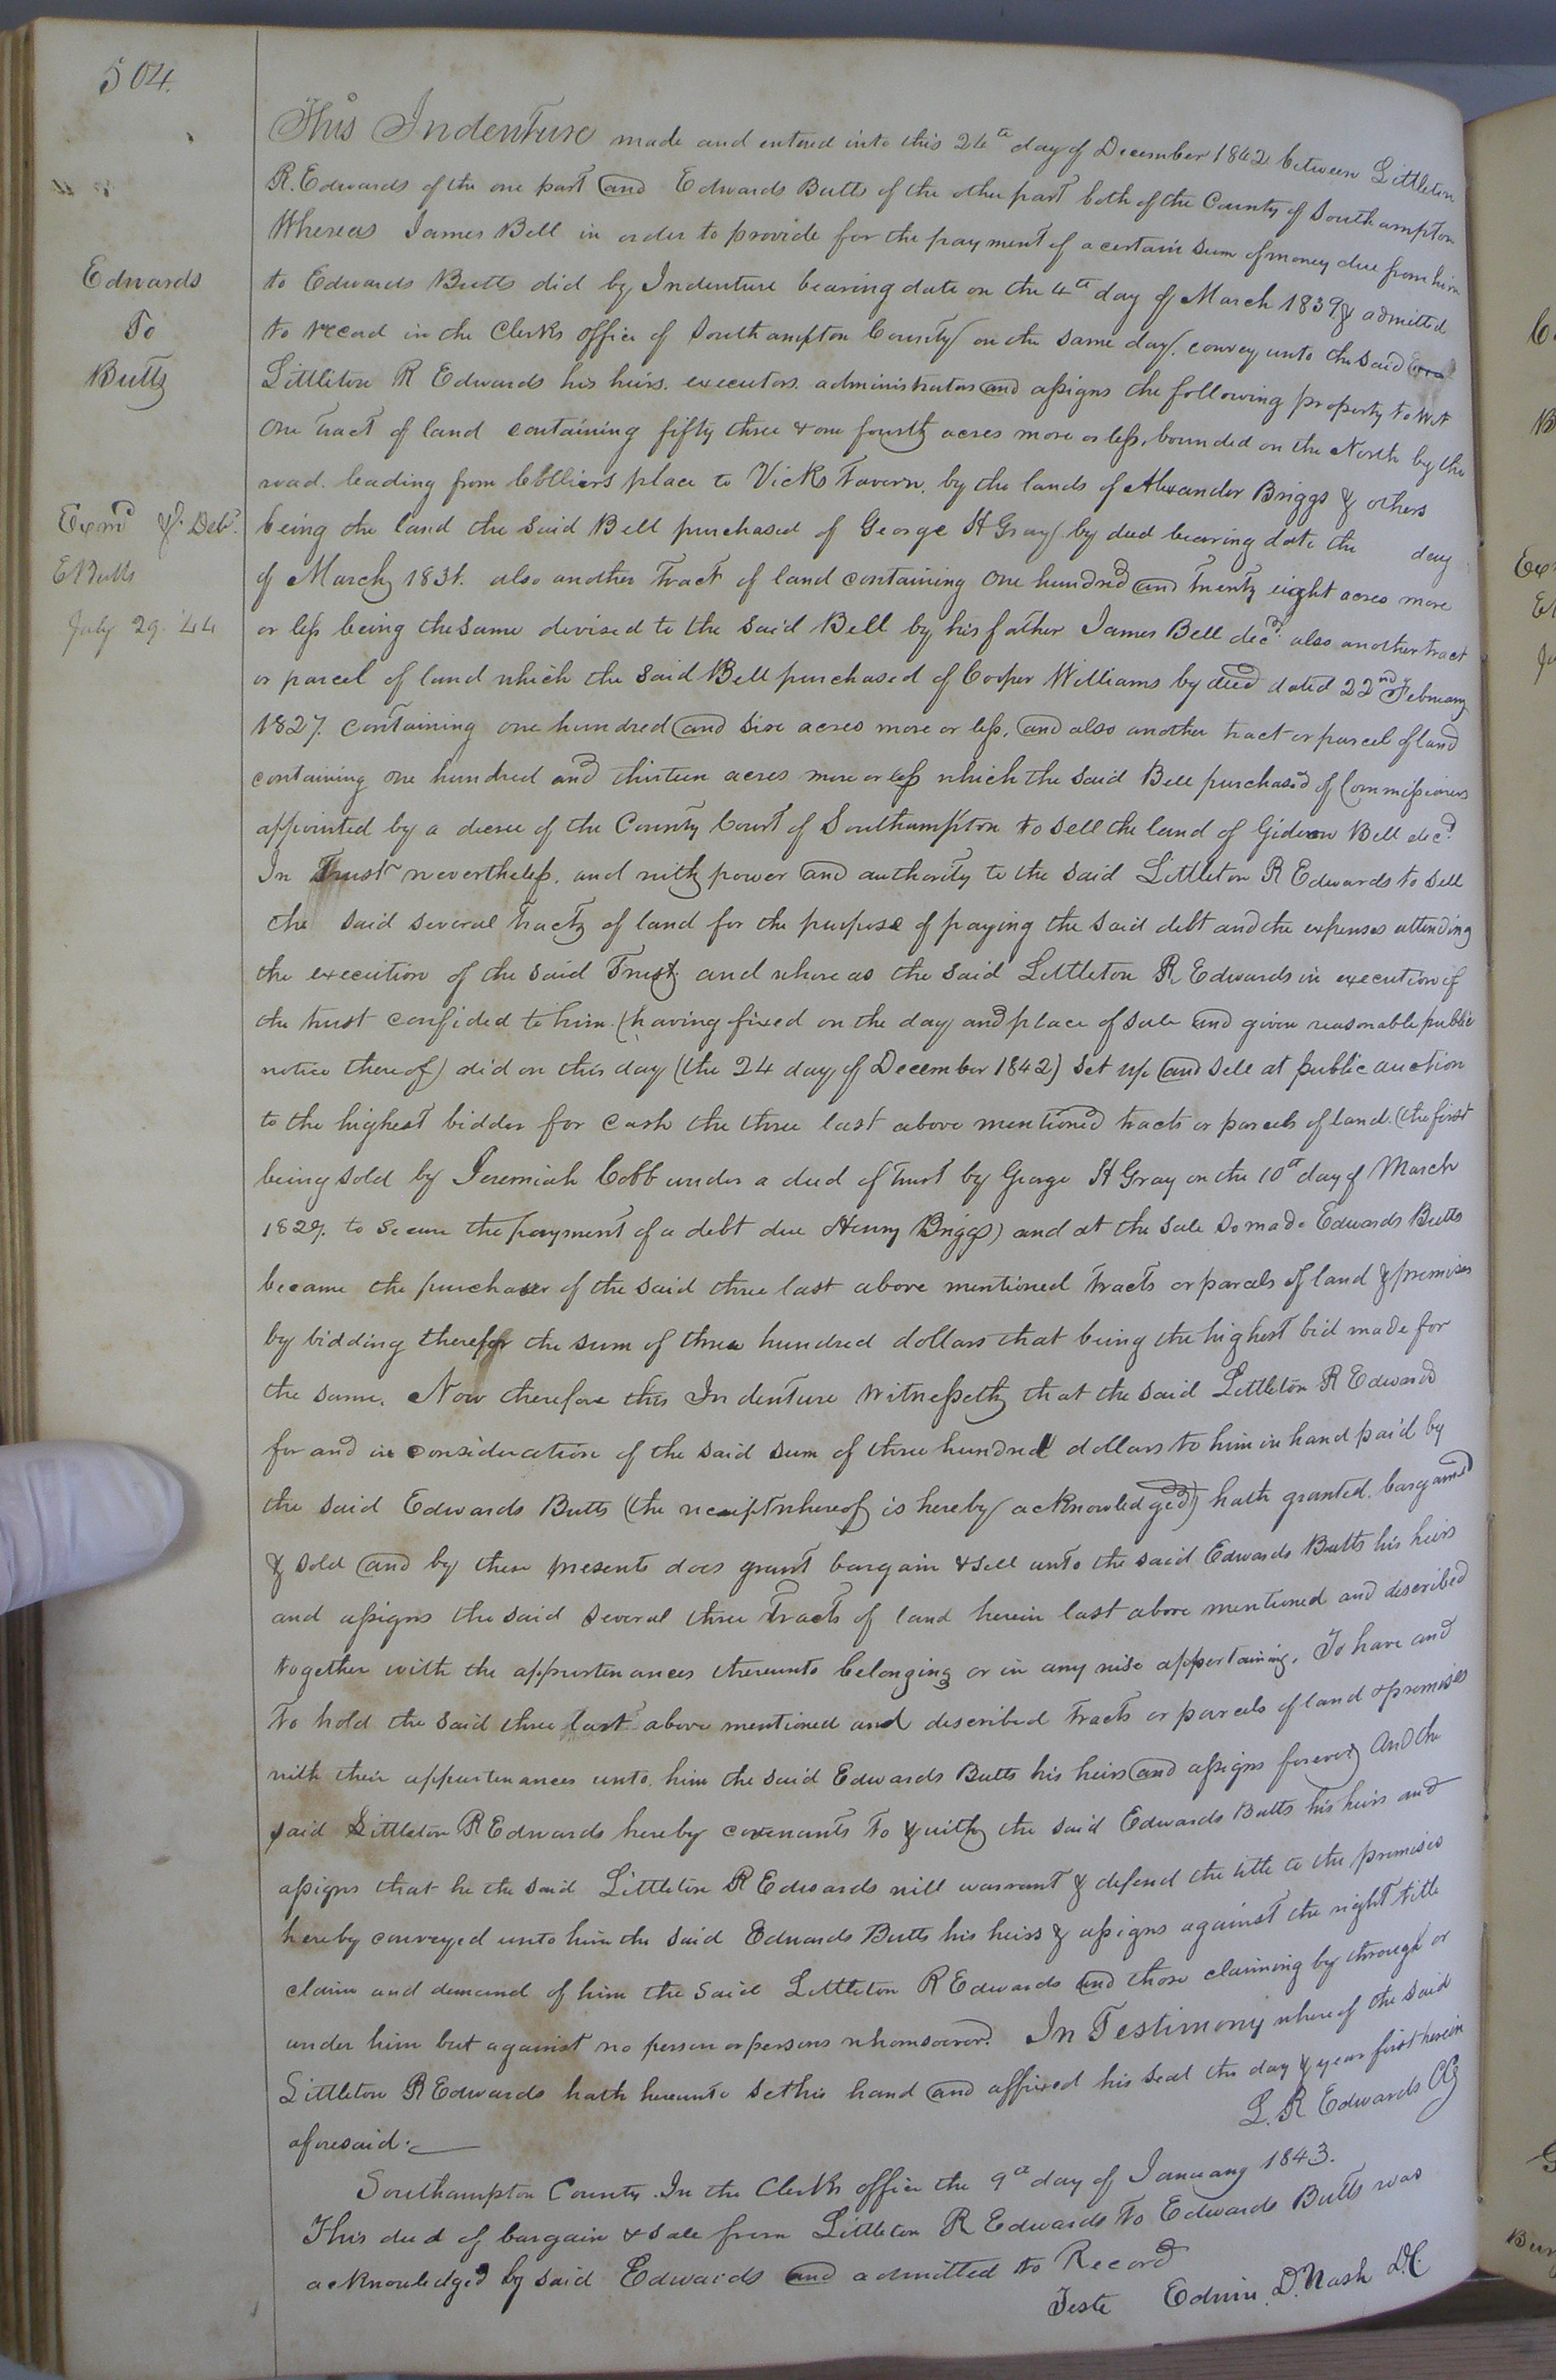 504.
Edwards
To
Butts
Exmd & Deld
E Butts
July 29. '44
This Indenture made and entered into this 24th day of December 1842 between Littleton
R. Edwards of the one part and Edwards Butts of the other part both of the County of Southampton
Whereas James Bell in order to provide for the payment of a certain sum of money due from him
to Edwards Butts did by Indenture bearing date on the 4th day of March 1839 & admitted
to record in the Clerks office of Southampton County on the same day, convey unto the said
Littleton R Edwards his heirs, executors, administrators and assigns the following property to wit
One tract of land containing fifty three & one fourth acres more or less, bounded on the North by the
road leading from place to Vicks Tavern, by the lands of Alexander Briggs & others
being the land the said Bell purchased of George H Gray by deed bearing date the day
of March 1831. also another tract of land containing One hundred and twenty eight acres more
or less being the same devised to the said Bell by his father James Bell decd. also another tract
or parcel of land which the said Bell purchased of Cooper Williams by deed dated 22nd February
1827. containing one hundred and six acres more or less, and also another tract or parcel of land
containing one hundred and thirteen acres more or less which the said Bell purchased of Commissioners
appointed by a decree of the County Court of Southampton to sell the land of Gideon Bell decd.
In Trust nevertheless, and with power and authority to the said Littleton R Edwards to sell
the said several tracts of land for the purpose of paying the said debt and the expenses attending
the execution of the said Trust, and whereas the said Littleton R Edwards in execution of
the trust confided to him (having fixed on the day and place of sale and given reasonable public
notice thereof) did on this day (the 24 day of December 1842) set up and sell at public auction
to the highest bidder for cash the three last above mentioned tracts or parcels of land. (the first
being sold by Jeremiah Cobb under a deed of trust by George H Gray on the 10th day of March
1829. to secure the payment of a debt due Henry Briggs) and at the sale so made Edwards Butts
became the purchaser of the said three last above mentioned tracts or parcels of land & premises
by bidding therefor the sum of three hundred dollars that being the highest bid made for
the same. Now therefore this Indenture Witnesseth that the said Littleton R Edwards
for and in consideration of the said sum of three hundred dollars to him in hand paid by
the said Edwards Butts (the receipt whereof is hereby acknowledged) hath granted, bargained
& sold and by these presents does grant bargain & sell unto the said Edwards Butts his heirs
and assigns the said several three tracts of land herein last above mentioned and described
together with the appurtenances thereunto belonging or in any wise appertaining. To have and
to hold the said three last above mentioned and described tracts or parcels of land & premises
with their appurtenances unto him the said Edwards Butts his heirs and assigns forever, and the
said Littleton R Edwards hereby covenants to & with the said Edwards Butts his heirs and
assigns that he the said Littleton R Edwards will warrant & defend the title to the premises
hereby conveyed unto him the said Edwards Butts his heirs & assigns against the right title
claim and demand of him the said Littleton R Edwards and those claiming by through or
under him but against no person or persons whomsoever. In Testimony whereof the said
Littleton R Edwards hath hereunto set his hand and affixed his seal the day & year first herein
aforesaid.
L. R Edwards
Southampton County. In the Clerks office the 9th day of January 1843.
This deed of bargain & sale from Littleton R Edwards to Edwards Butts was
acknowledged by said Edwards and admitted to Record
Teste Edwin D. Nash D.C.